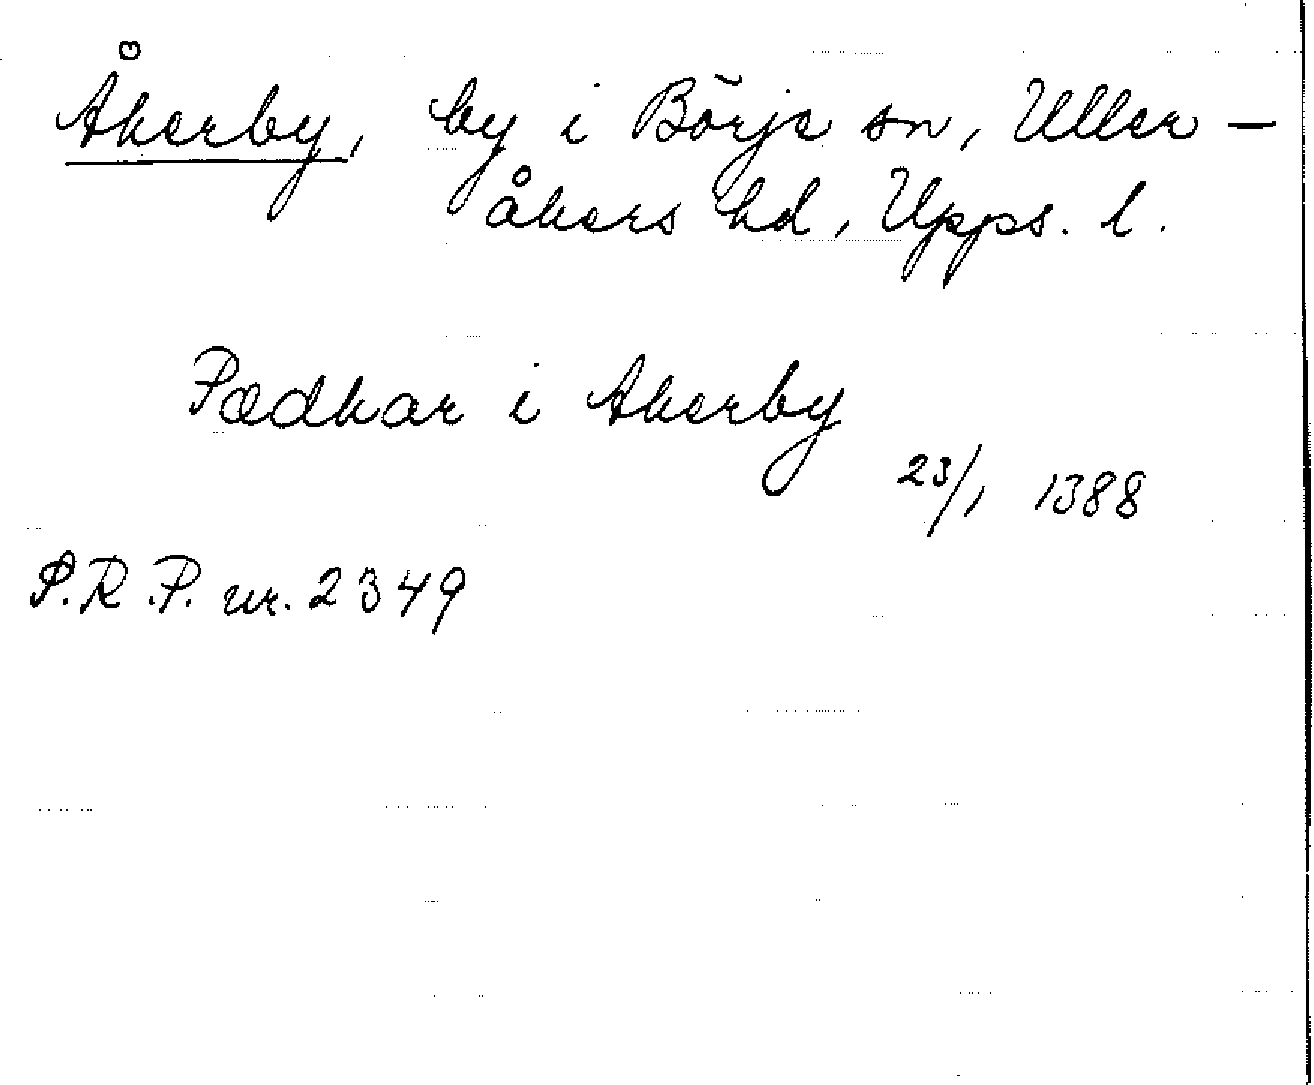 Åkerby, by i Börje sn, Uller-
åkers hd, Upps. l.
Pædhar i Akerby
23/1 1388
P.R.P. nr. 2349